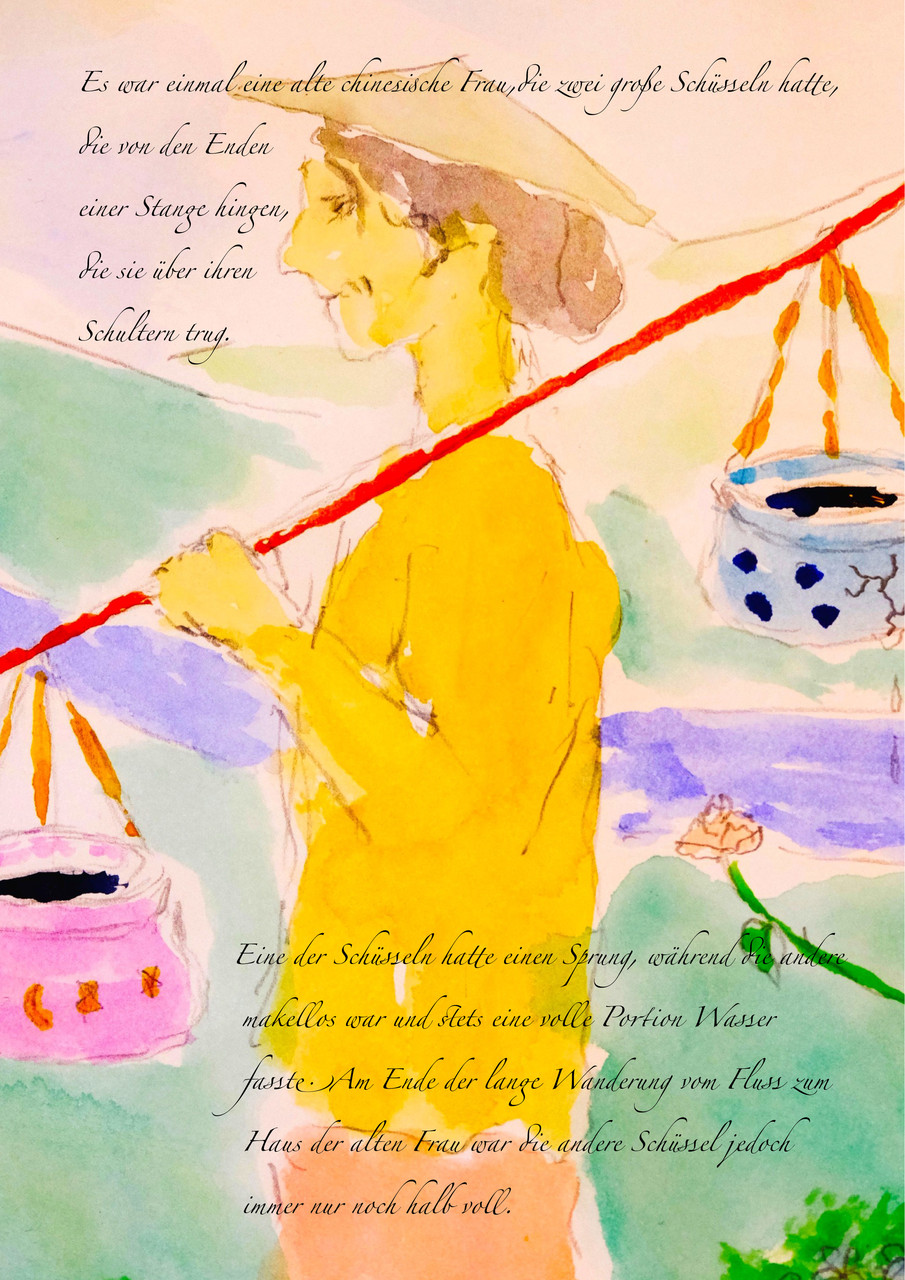 Es war einmal eine alte chinesische Frau, die zwei große Schüsseln hatte,
die von den Enden
einer Stange hingen,
die sie über ihren
Schultern trug.
Eine der Schüsseln hatte einen Sprung, während die andere
makellos war und stets eine volle Portion Wasser
fasste. Am Ende der lange Wanderung vom Fluss zum
Haus der alten Frau war die andere Schüssel jedoch
immer nur noch halb voll.